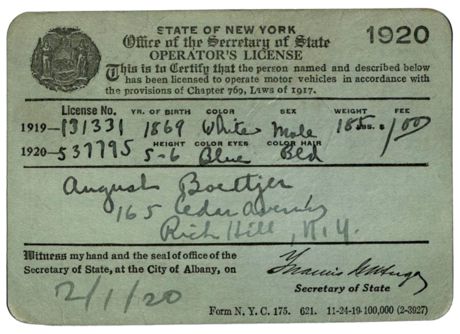 STATE OF NEW YORK
1920
Office of the Secretary of State
OPERATOR'S LICENSE
This is to Certify that the person named and described below
has been licensed to operate motor vehicles in accordance with
the provisions of Chapter 769, Laws of 1917.
License No. YR. OF BIRTH COLOR SEX WEIGHT FEE
1919—131331 1869 White Male 185 LBS. $1.00
HEIGHT COLOR EYES COLOR HAIR
1920—537795 5-6 Blue Bld
August Boettjer
165 Cedar Avenue
Rich Hill, N.Y.
Witness my hand and the seal of office of the
Secretary of State, at the City of Albany, on
2/1/20
Francis M. Hugo
Secretary of State
Form N. Y. C. 175. 621. 11-24-19-100,000 (2-3927)